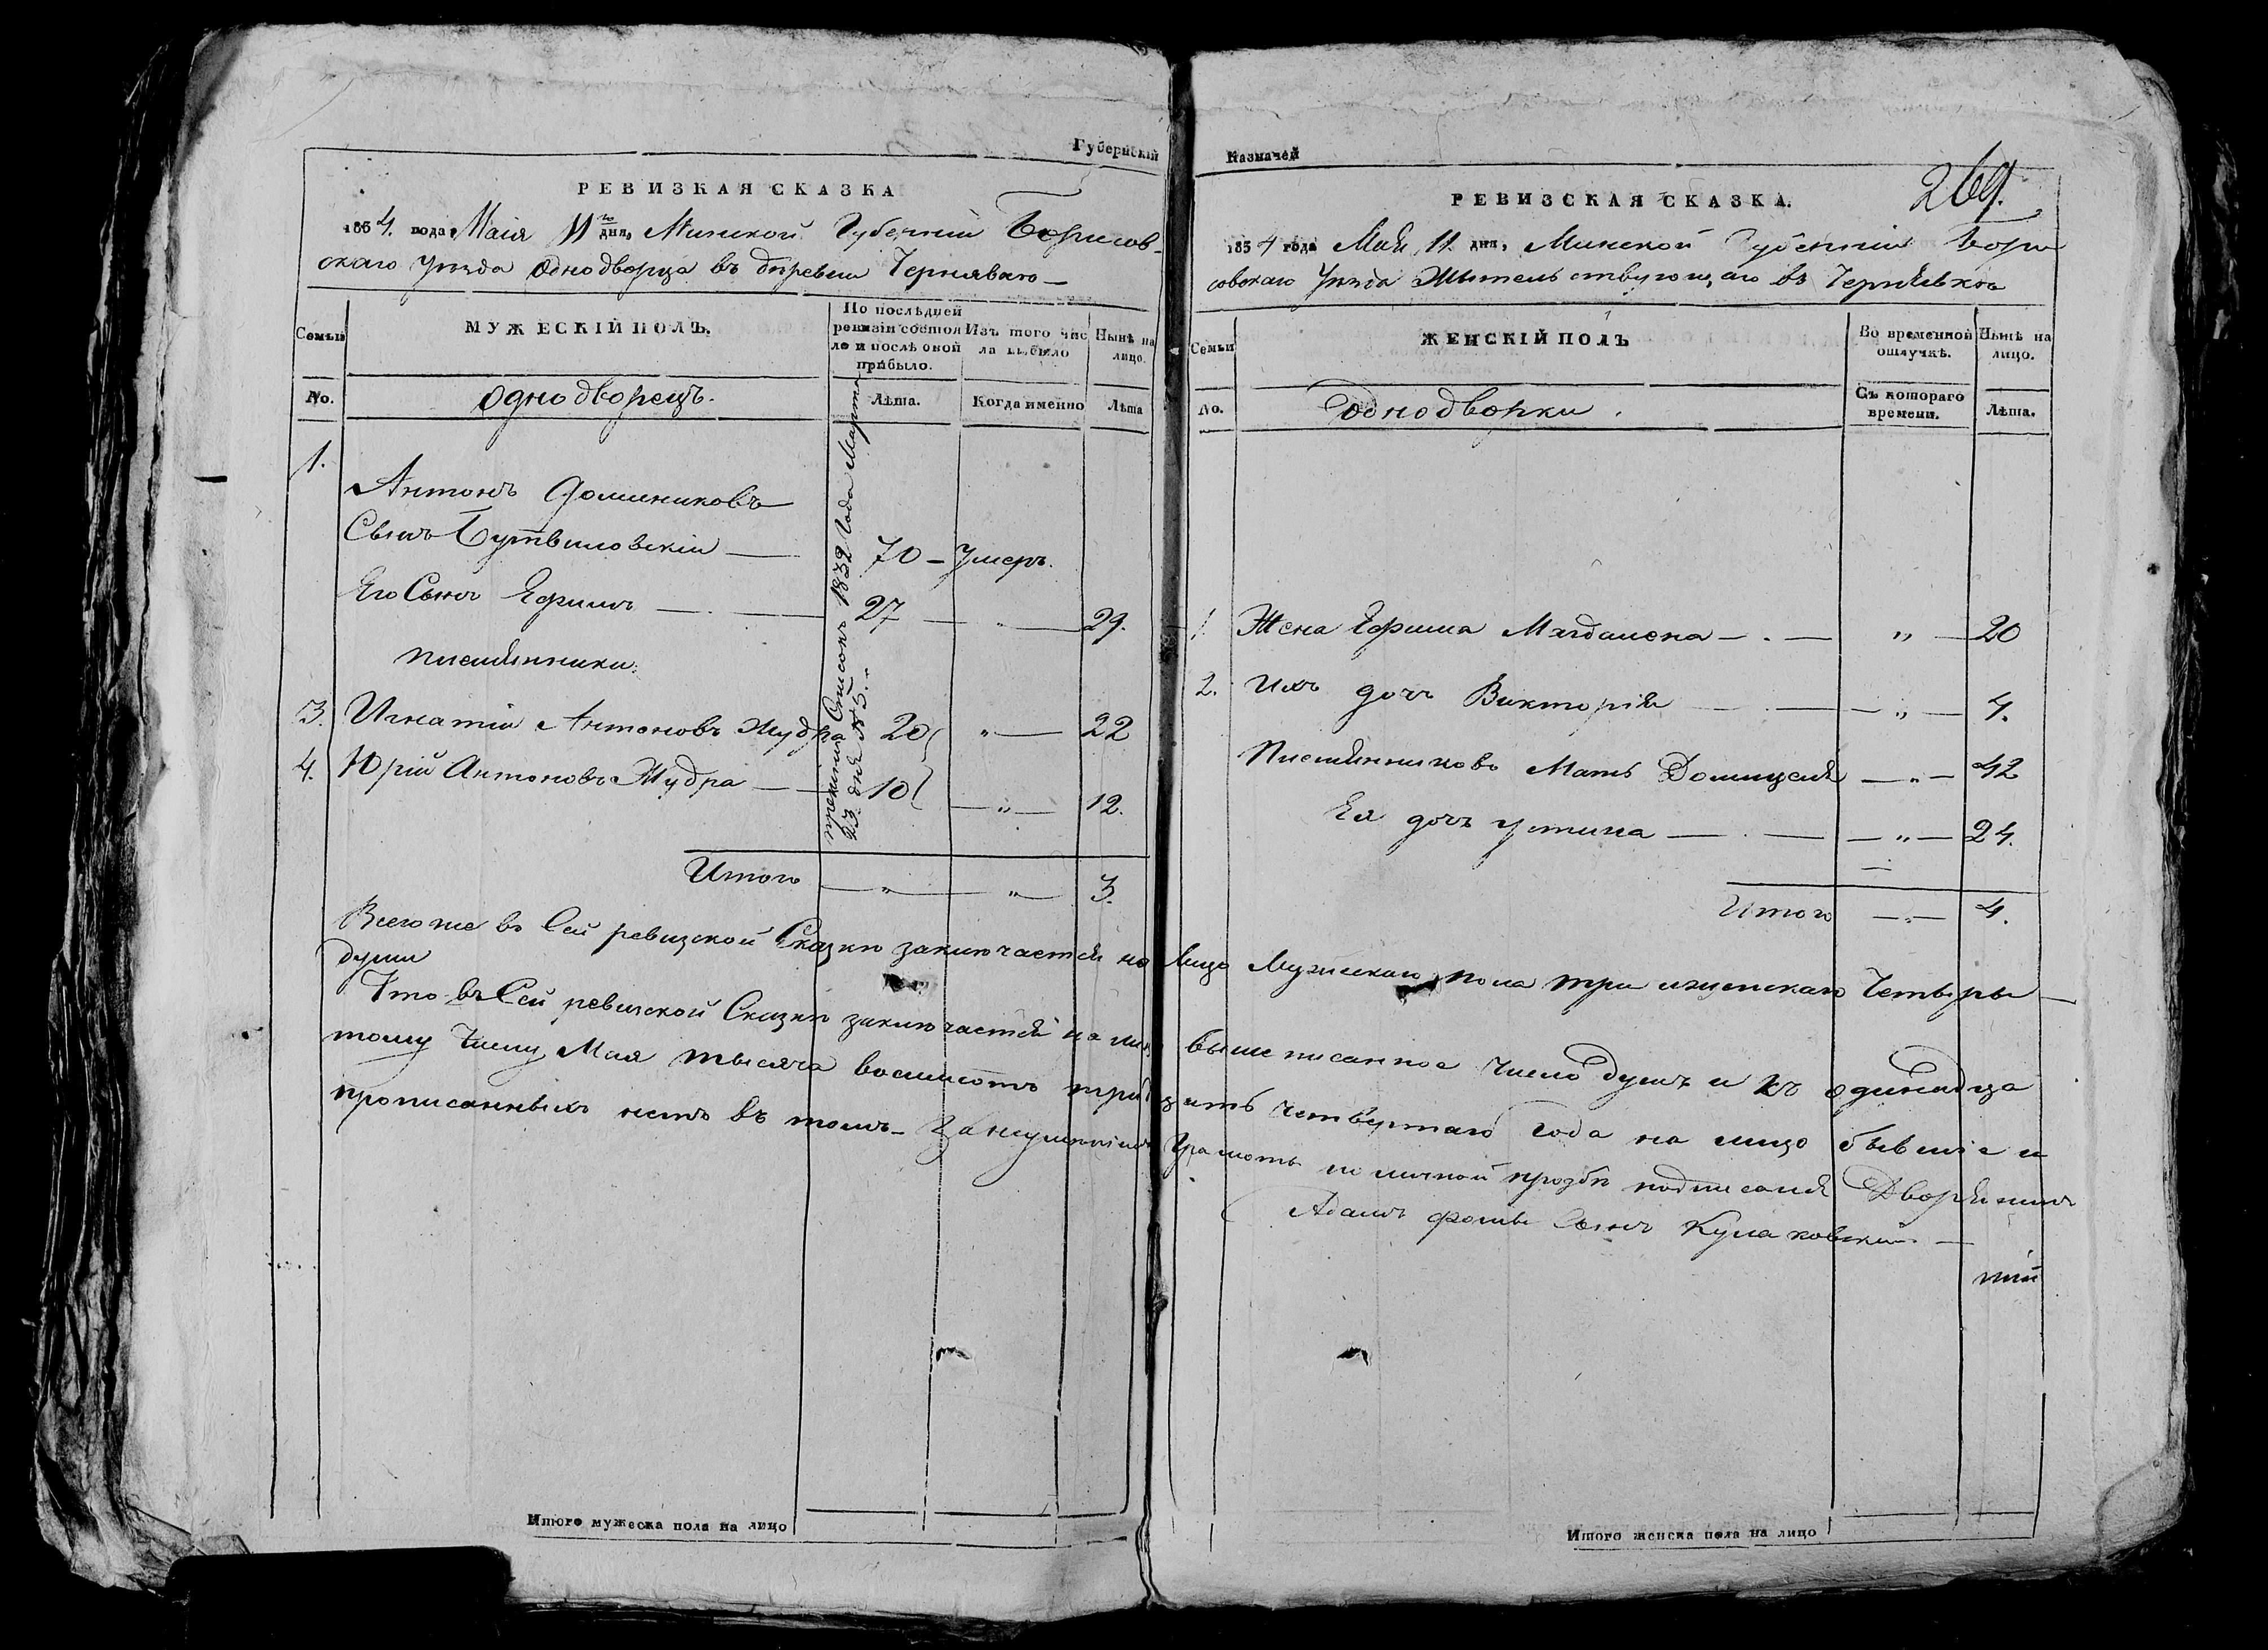 Губернскій
РЕВИЗКАЯ СКАЗКА
1834. года Маія 11го дня, Минской Губерніи Борисов-
скаго уезда однодворца въ деревни Чернявкѣ
Семьи
МУЖЕСКІЙ ПОЛЪ.
По последней ревизіи состояло и послѣ оной прибыло.
Изъ того числа выбыло
Нынѣ на лицо.
No.
однодворецъ.
Лѣта.
Когда именно
Лѣта
1.
Антонъ Доминиковъ
Сынъ Бутвиловскій — 70 — Умеръ.
Его Сынъ Ефимъ — 27 — " — 29.
племянники:
3. Игнатій Антоновъ Жудра 20 " — 22
4. Юрій Антоновъ Жудра — 10 — " — 12.
1832 Года Марта
23 дня № 5.
Итого — " — " — 3.
Казначей
269.
РЕВИЗСКАЯ СКАЗКА.
1834 года Мая 11. дня, Минской Губерніи Бори
совскаго уезда Жительствующаго въ Чернявкѣ
Семьи
ЖЕНСКІЙ ПОЛЪ
Во временной отлучкѣ.
Нынѣ на лицо.
No.
однодворки.
Съ котораго времени.
Лѣта.
1. Жена Ефима Магдалена — " — 20
2. Ихъ дочь Викторія — " — 4.
Племянниковъ Мать Домицеля — " — 42
Ея дочь Устина — " — 24.
Итого — " — 4.
Всего же въ Сей ревизской Сказки заключается на Лицо Мужескаго пола три иженскаго Четыры —
души
Что въ Сей ревизской Сказки заключается на лицо вышеписанное число душъ и къ одинадца
тому Числу Мая тысяча восмисотъ тридцать четвертаго года на лицо бывшіе и
прописанныхъ нетъ въ томъ — Грамоты по личной прозбѣ подписался Дворянинъ
Адамъ Сынъ Кулаковскій —
Итого мужеска пола на лицо
Итого женска пола на лицо